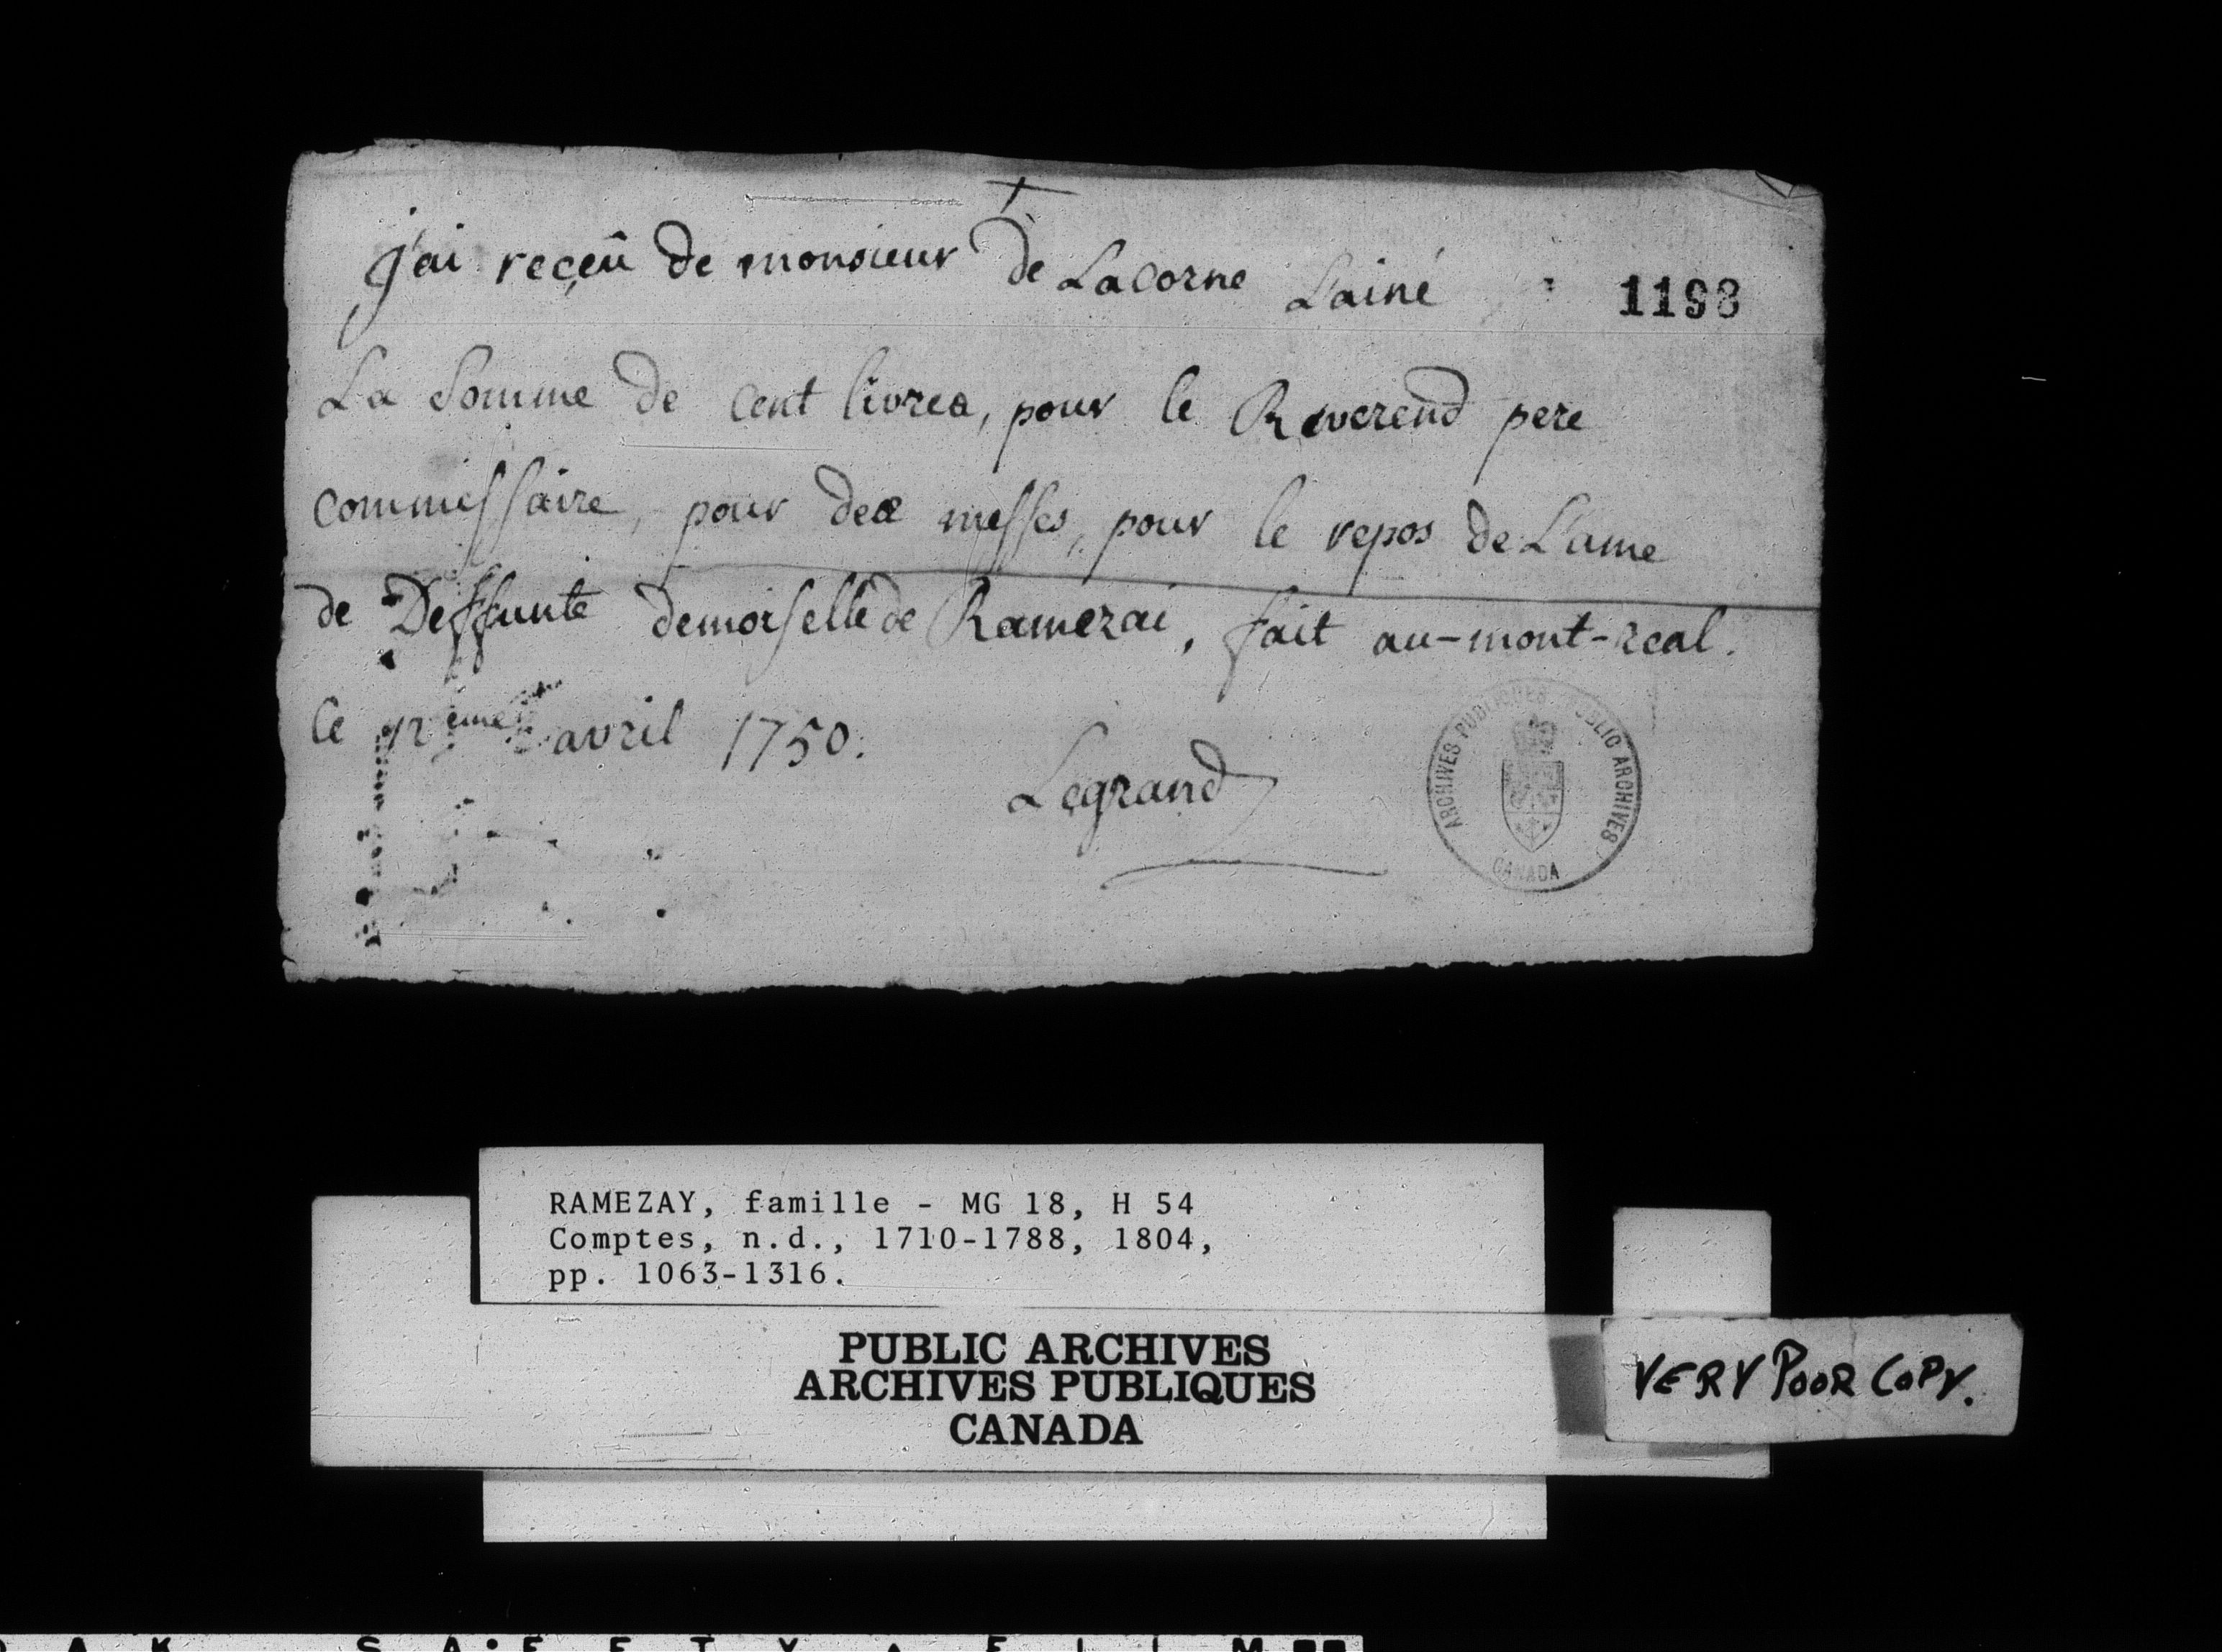 j'ai reçeû de monsieur de Lacorne L'ainé
1198
La Somme de cent livres, pour le Reverend pere
commissaire, pour des messes, pour le repos de L'ame
de Deffunte demoiselle de Ramezai, fait au-mont-real.
le 12eme avril 1750.
Legrand
ARCHIVES PUBLIQUES PUBLIC ARCHIVES
CANADA
RAMEZAY, famille - MG 18, H 54
Comptes, n.d., 1710-1788, 1804,
pp. 1063-1316.
PUBLIC ARCHIVES
ARCHIVES PUBLIQUES
CANADA
VERY POOR COPY.